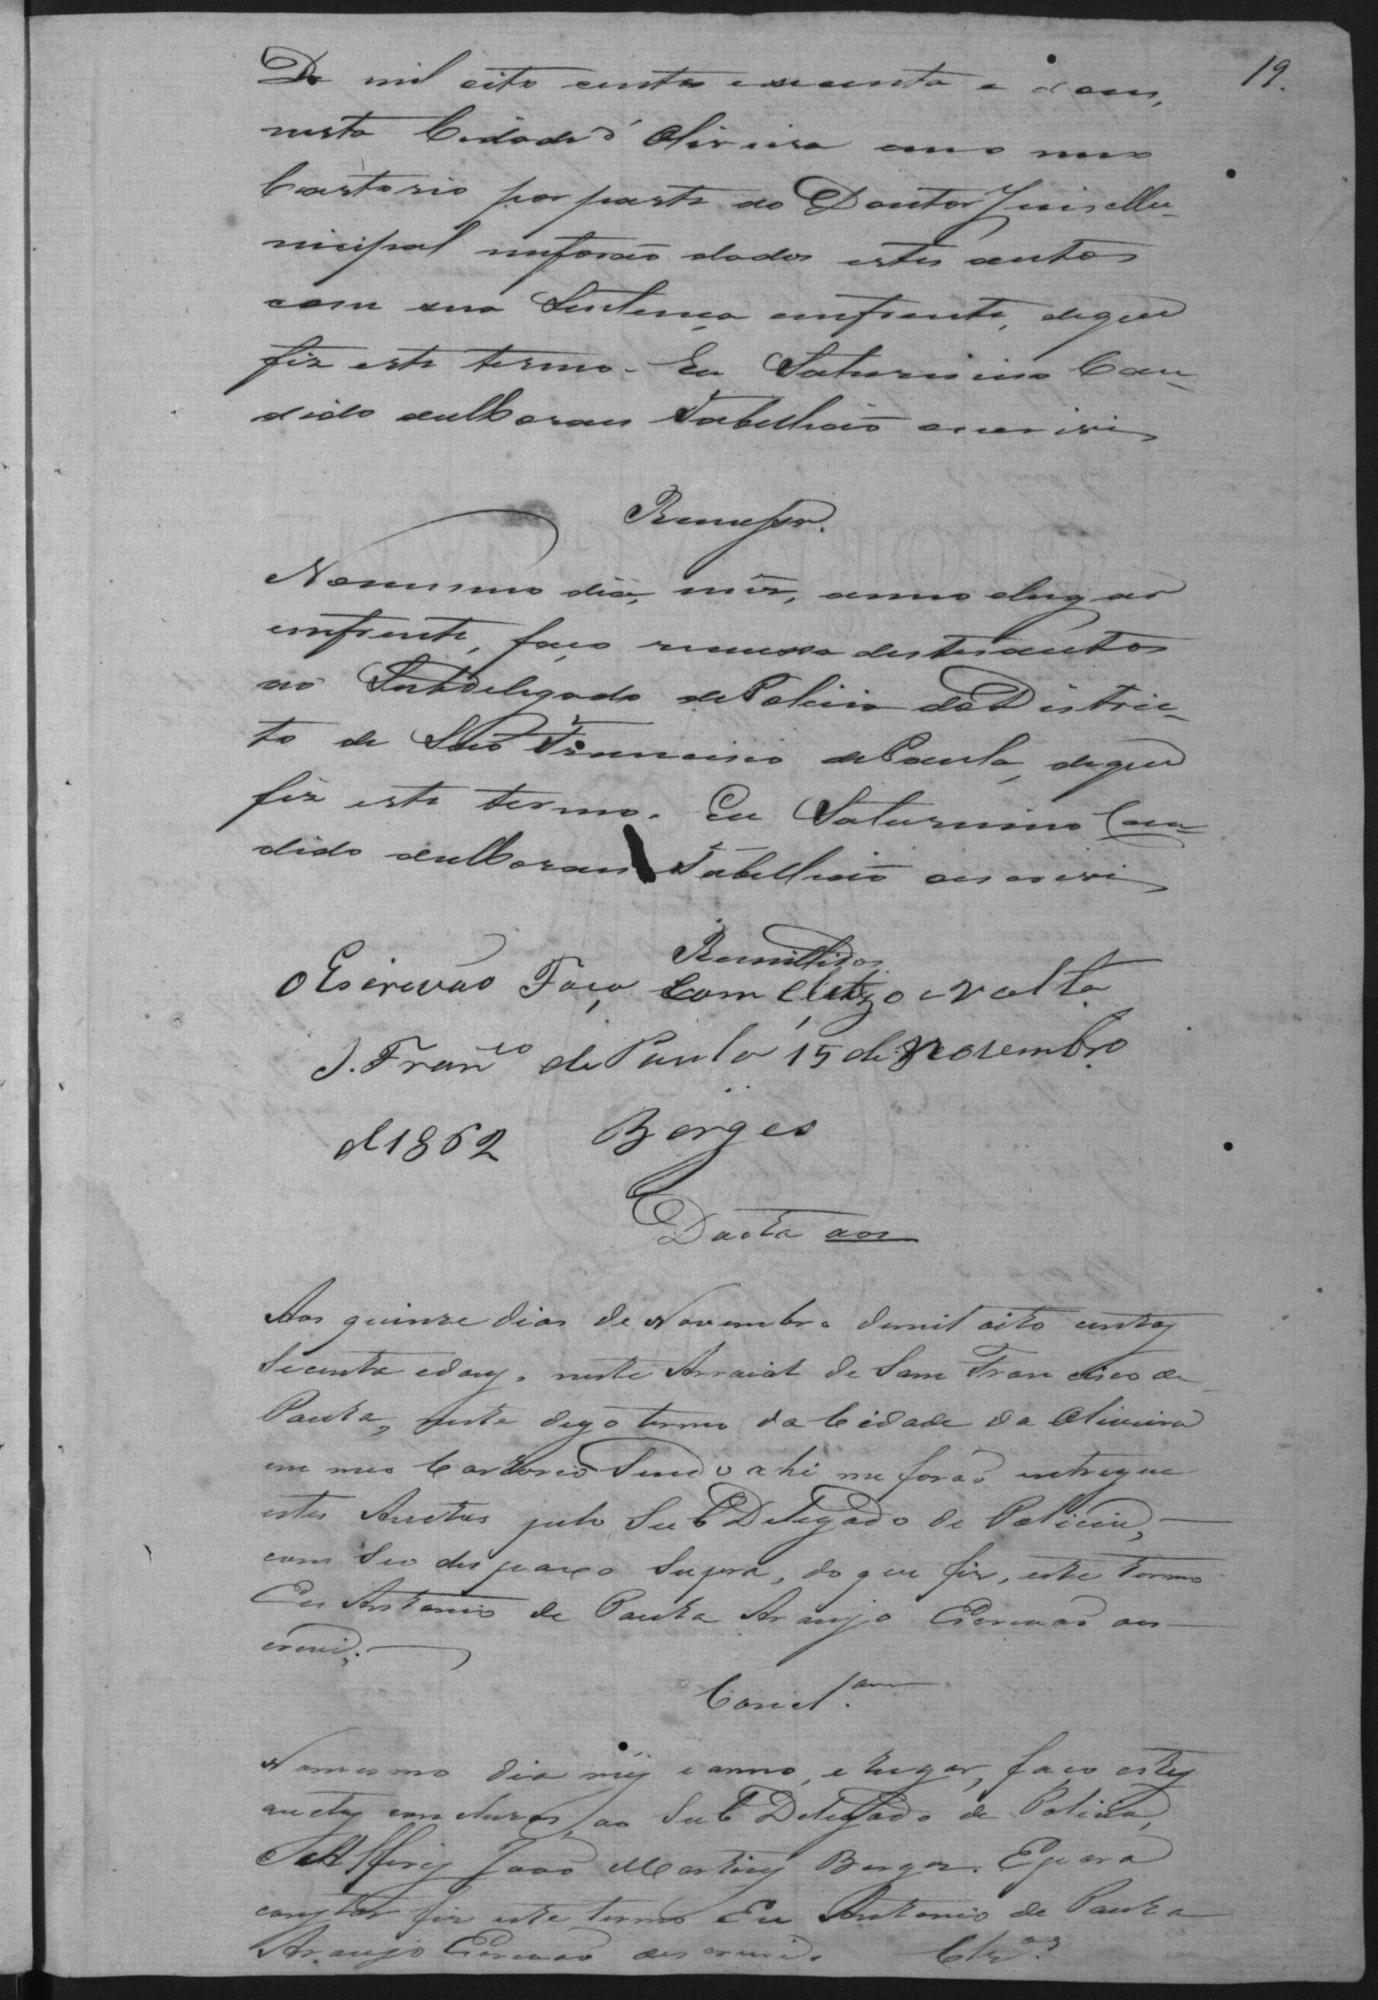 19.
De mil oito centos esecenta e dous,
nesta Cidade d'Oliveira em o meo
Cartorio por parte do Doutor Juis Mu-
nicipal meforão dados estes autos
com sua Sentença emfrente, deque
fiz este termo. Eu Saturnino Can-
dido Tabellião oescrivi
Remessa.
Nomesmo dia, mes, anno elugar
emfrente, faço remessa destesautos
ao Subdelegado dePolicia doDistric-
to de São Francisco dePaula, deque
fiz este termo. Eu Saturnino Can-
dido Tabellião oescrivi
Remittidos
O Escrivão Faça Com e volta
S. Franco de Paula 15 de Novembro
d1862 Borges
Dacta
Aos quinze dias de Novembro demil oito centos
Secenta edous, neste Arraial de Sam Francisco de
Paula, neste digo termo da Cidade da Oliveira
em meo Cartorio Sendo ahi me forão entregue
estes Auctos pelo SubDelegado de Policia,
com Seo despaxo Supra, do que fiz, este termo
Eu Antonio de Paula Araujo Escrivão oes-
crevi.
Concl.am
Nomesmo dia mes e anno, e lugar, faço estes
auctos concluzos, ao SubDelegado de Policia,
Alferes João Martins Borges. Epara
constar fiz este termo Eu Antonio de Paula
Araujo Escrivão oescrevi. Clzos